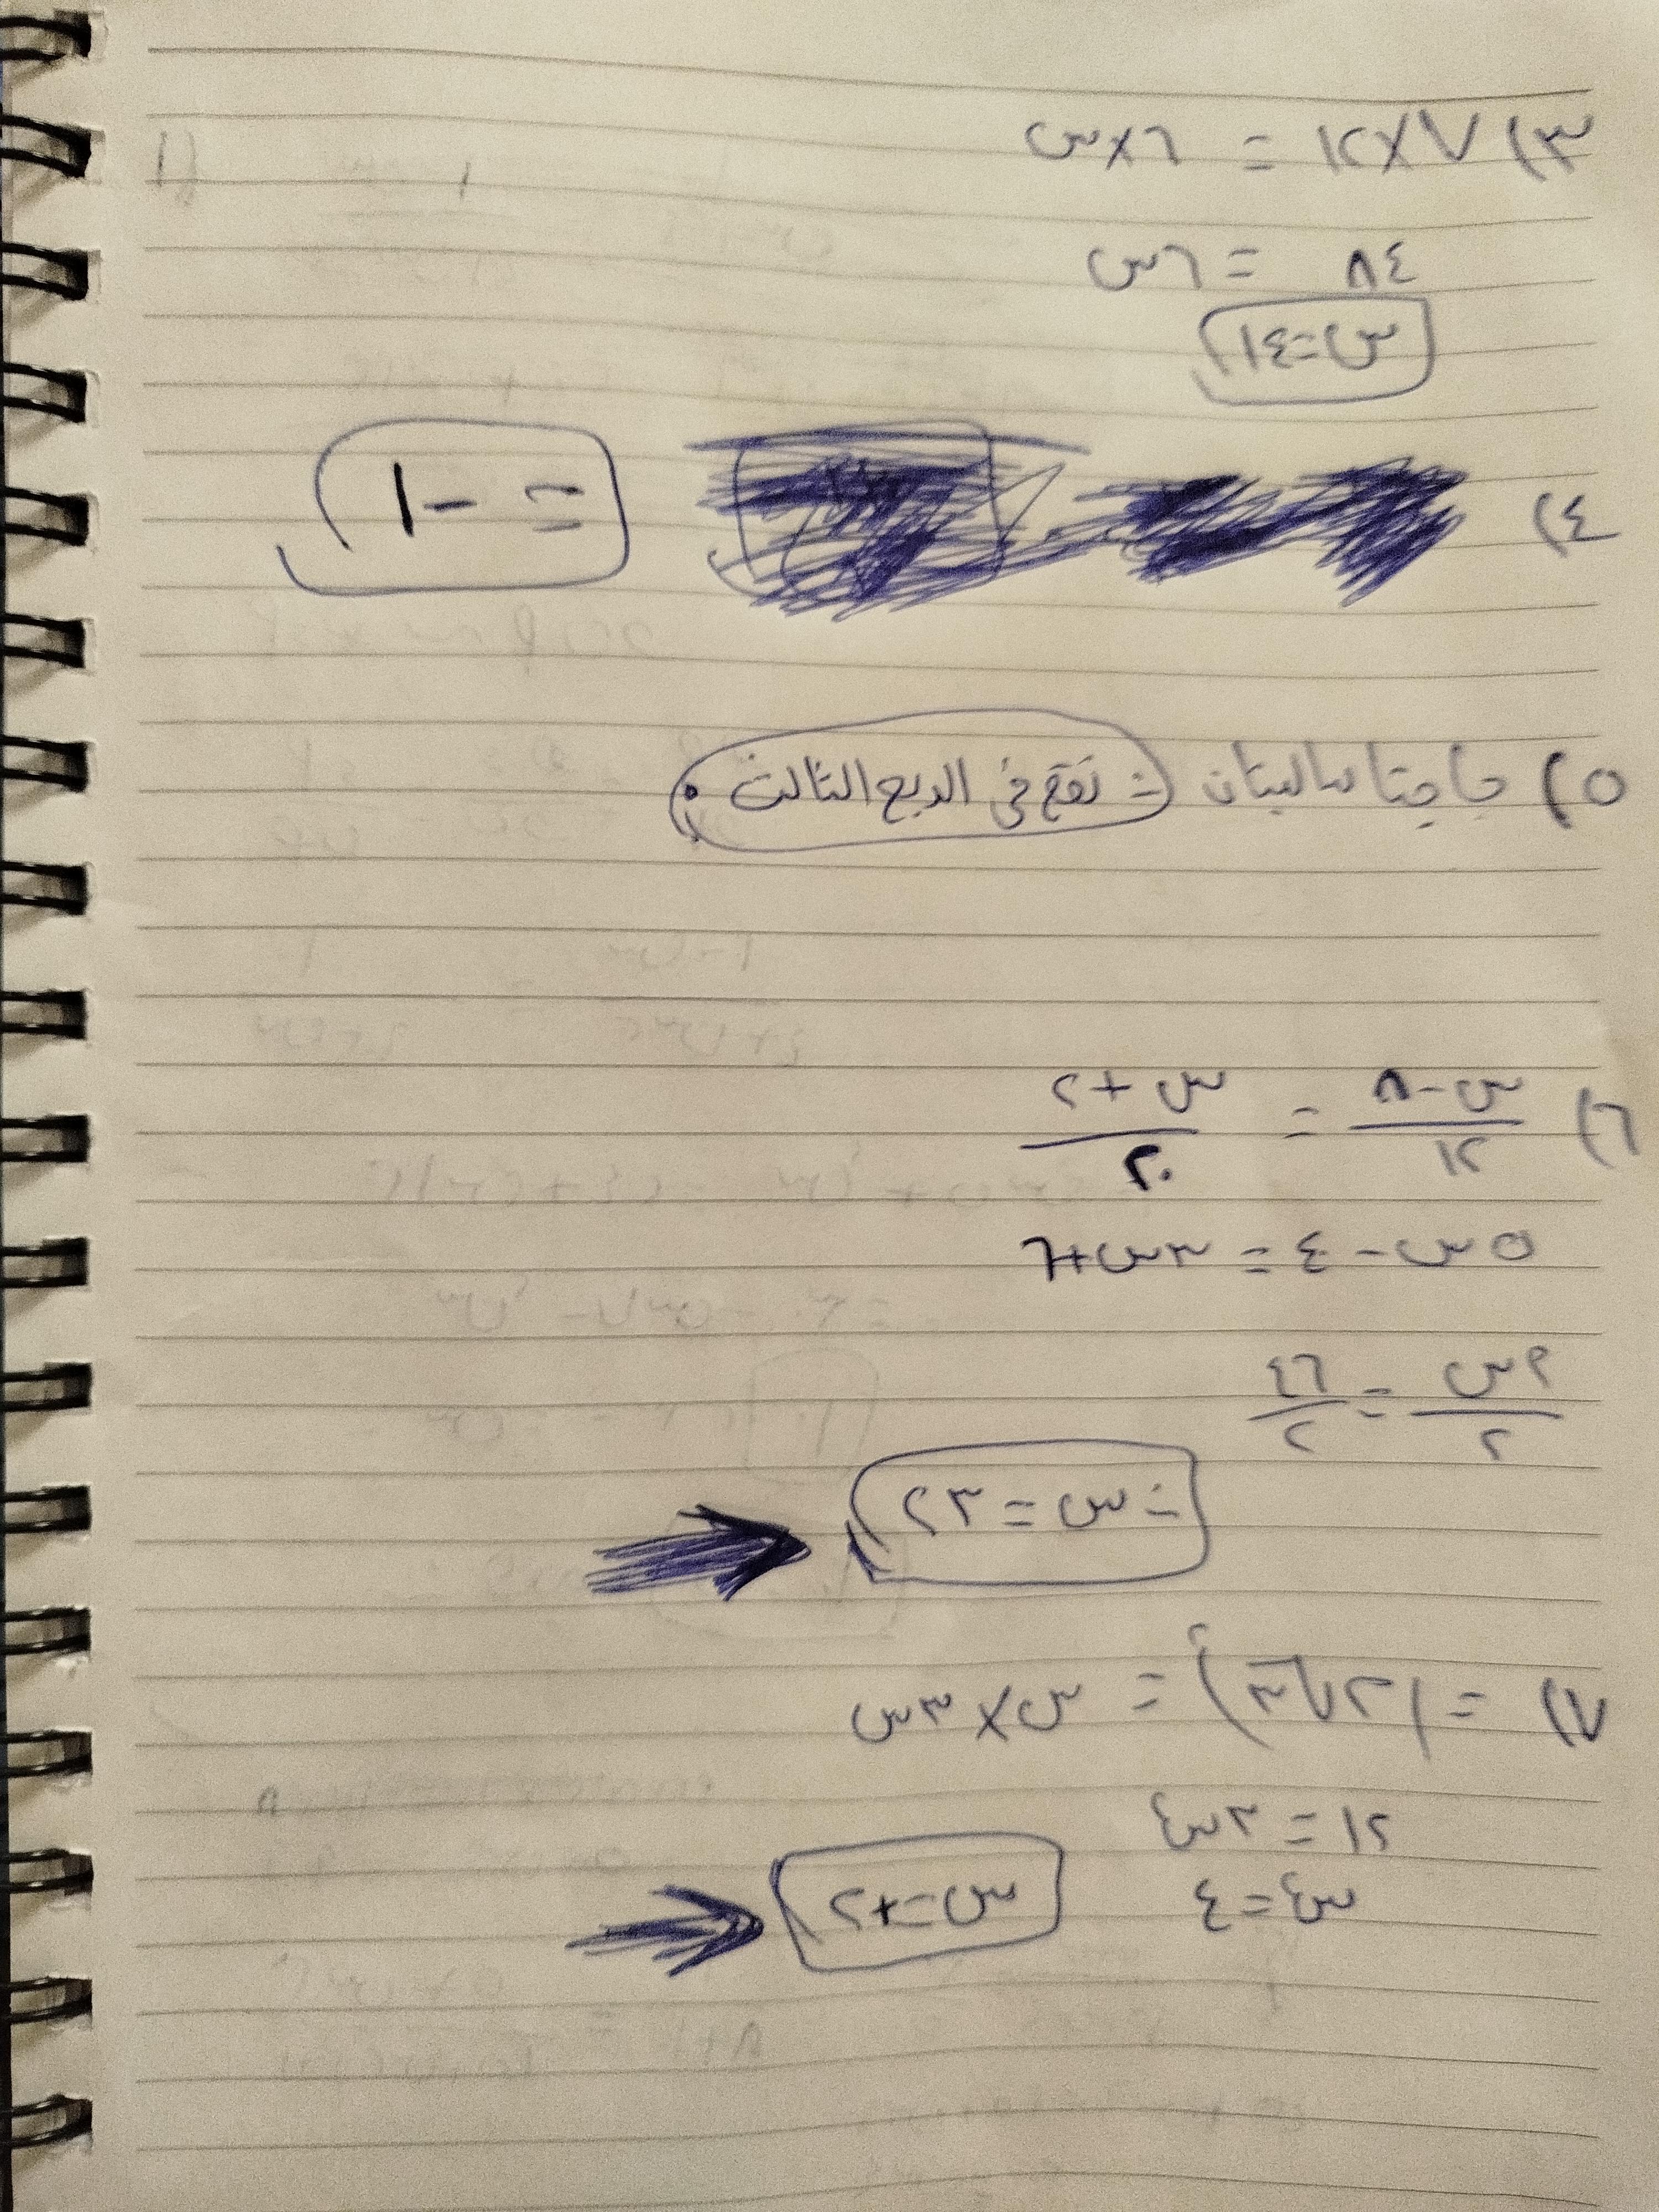 ٣) ٧×١٢ = ٦×س
٨٤ = ٦س
س=١٤
٤) = -١
٥) جا جتا سالبتان ∴ تقع في الربع الثالث
٦) س-٨/١٢ = س+٢/٢٠
٥س-٤ = ٣س+٦
٢س/٢ = ٤٦/٢
∴ س = ٢٣
٧) = (٢√٣)² = س×٣س
١٢ = ٣س²
س² = ٤
س=+٢